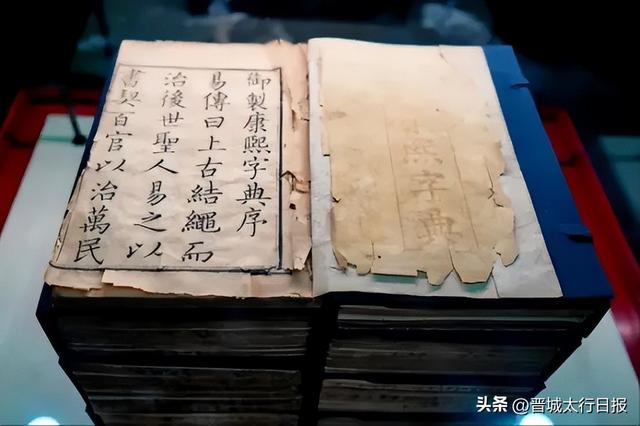 熙字典
御製康熙字典序
易傳曰上古結繩而
治後世聖人易之以
書契百官以治萬民
头条 @晋城太行日报